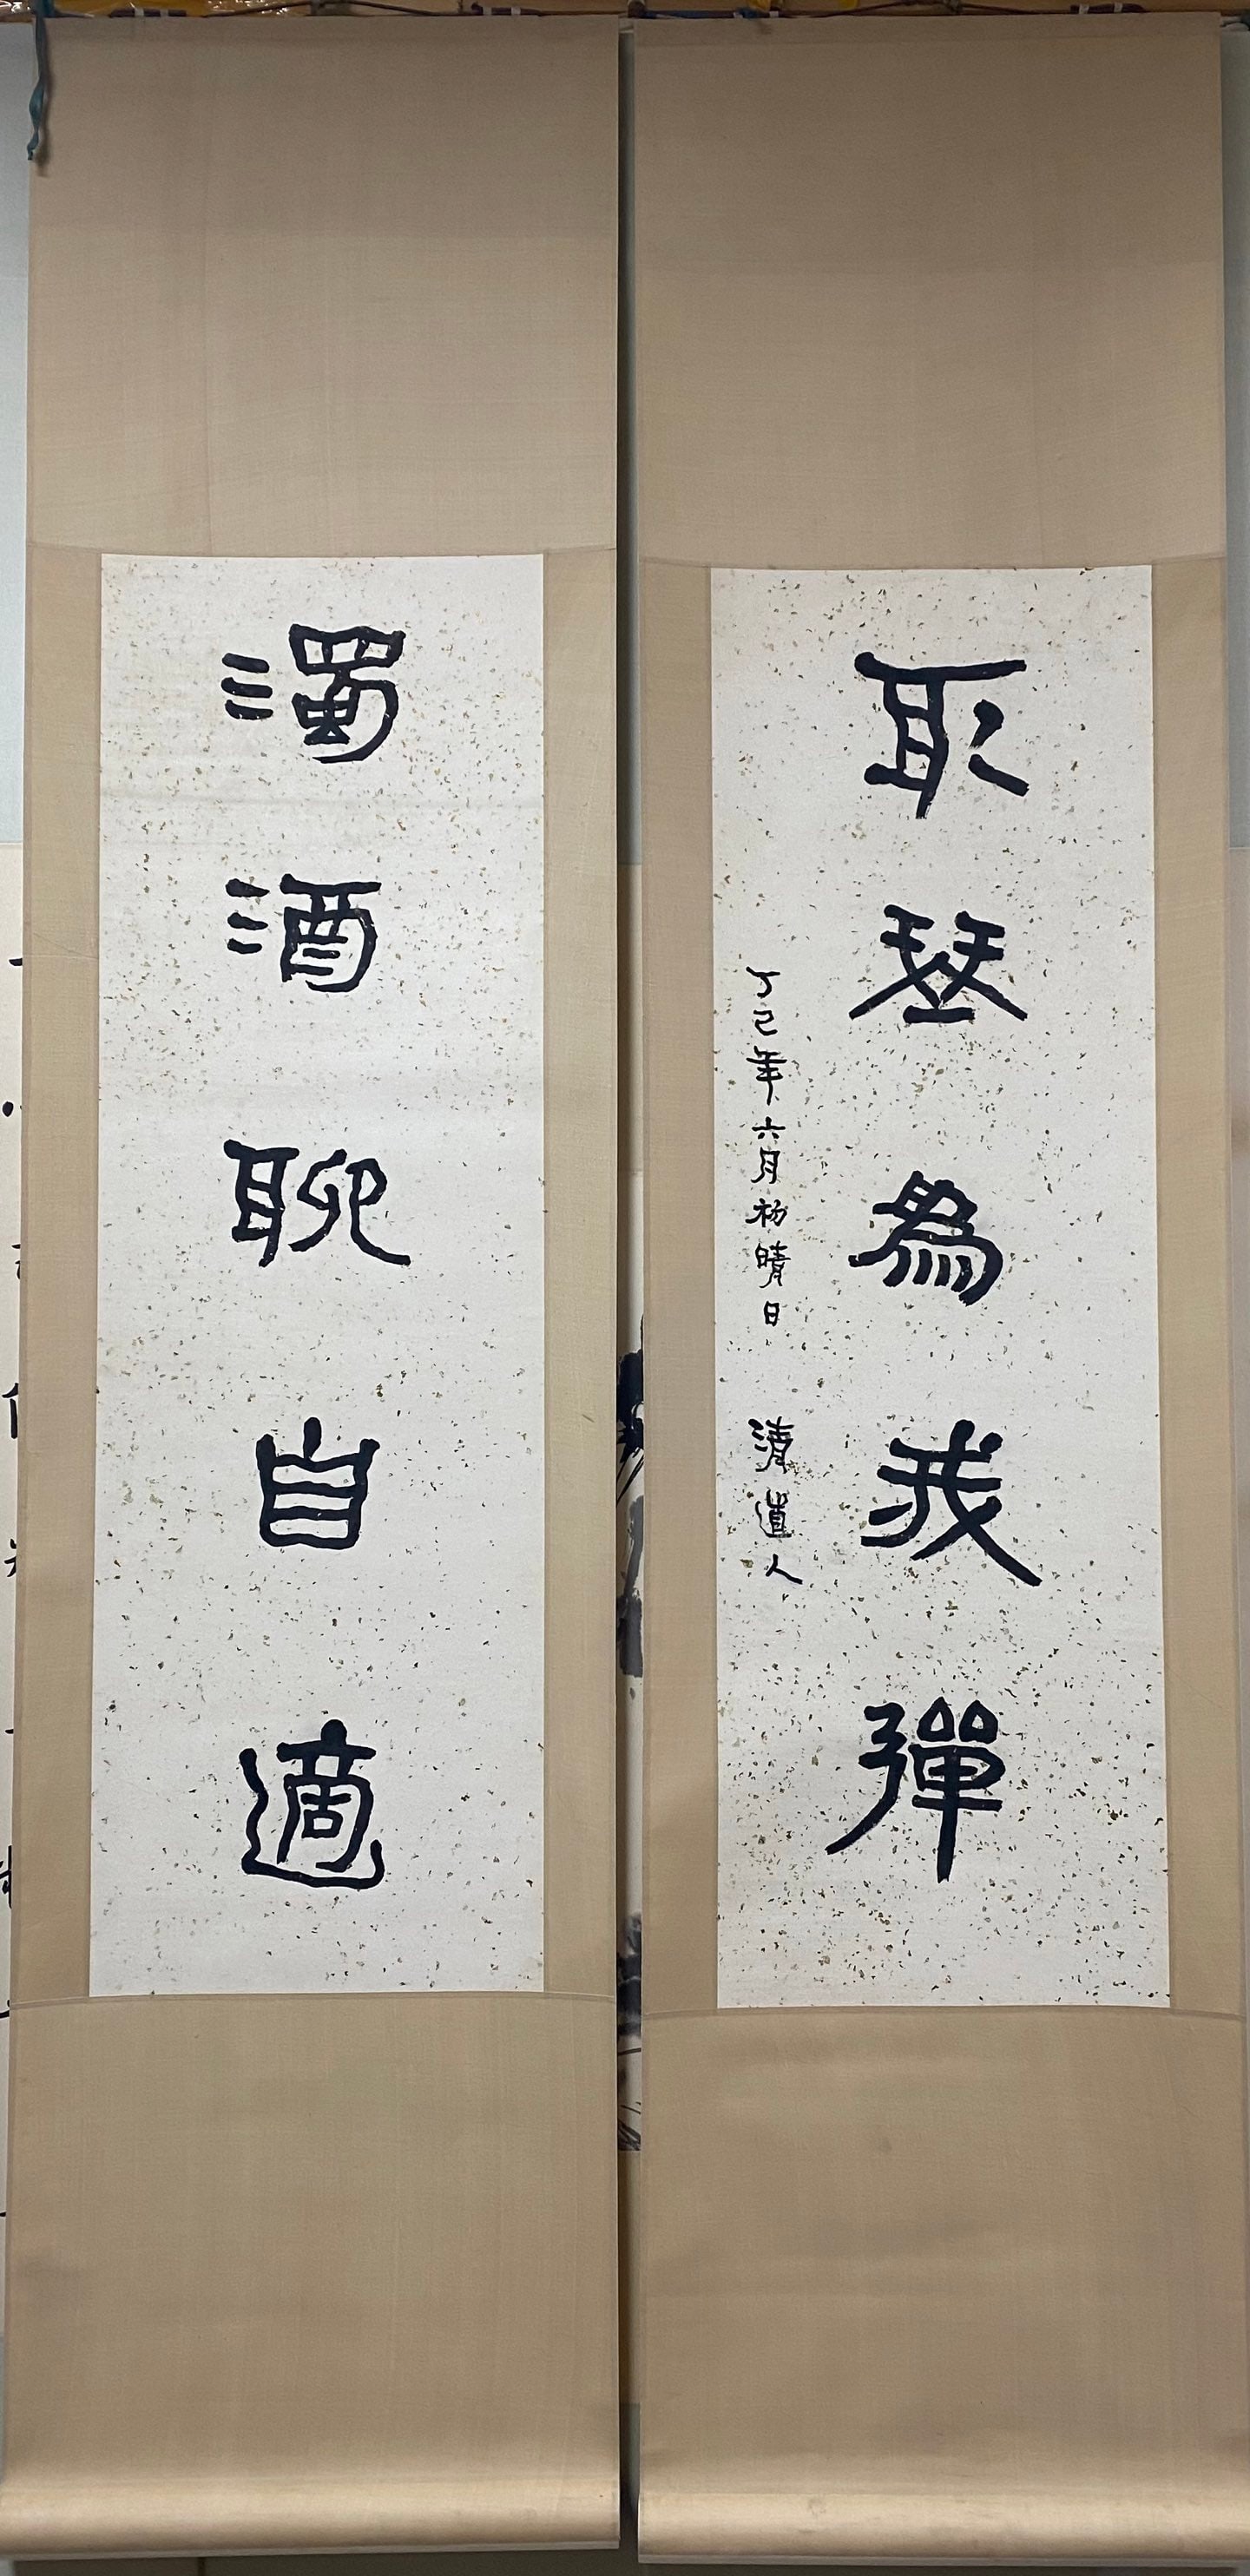 取琴為我彈
丁巳年六月初晴日 清道人
濁酒聊自適